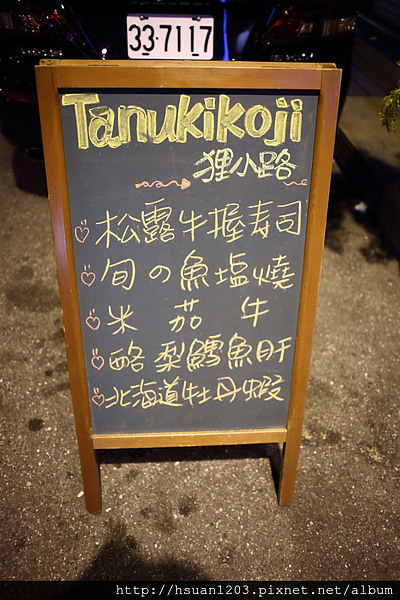 33-7117
Tanukikoji
狸小路
松露牛握寿司
旬の魚塩燒
米茄牛
酪梨鱈魚肝
北海道牡丹蝦
http://hsuan1203.pixnet.net/album